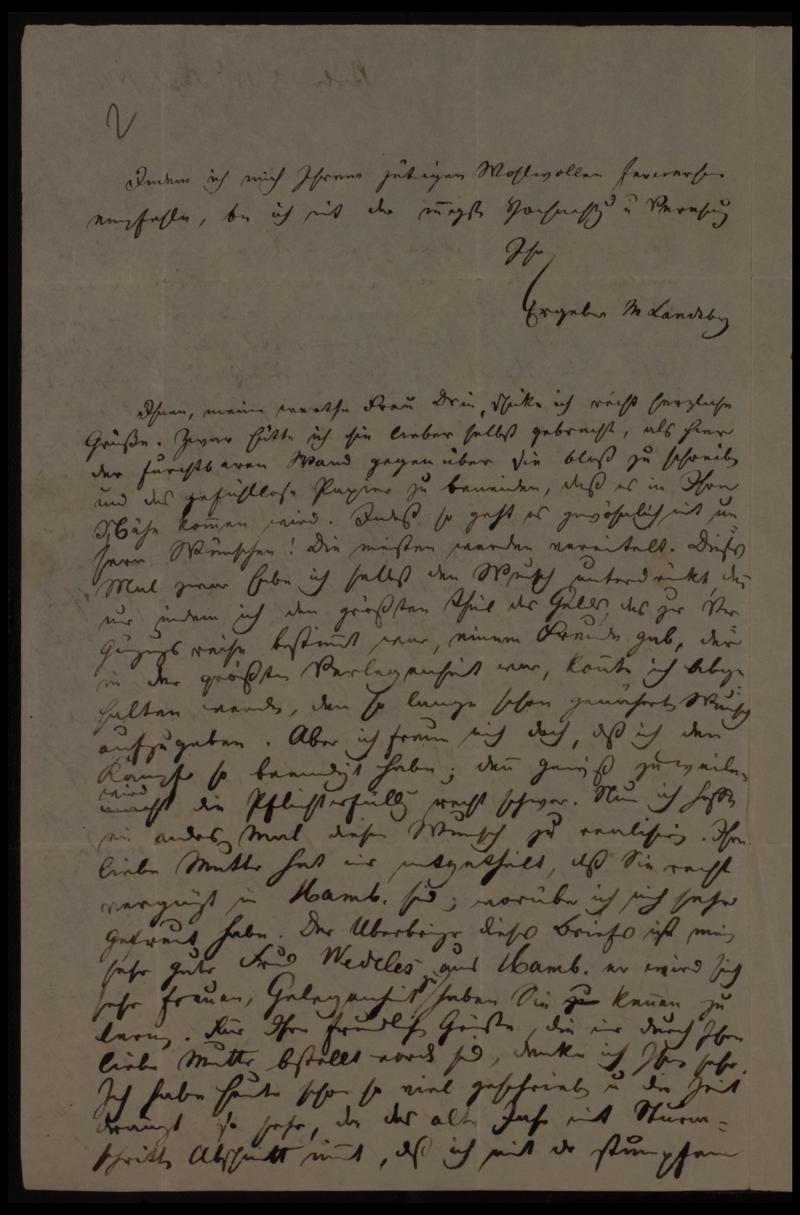 2
Indem ich mich Ihrem gütigen Wohlwollen fernerhin
empfehle, bin ich mit der innigsten Hochachtung u Verehrung
Ihr
Ergebener M Landsberg
Ihnen, meine werthe Frau Drin, schicke ich recht herzliche
Grüße. Zwar hätte ich sie lieber selbst gebracht, als hier
der furchtbaren Wand gegenüber sie bloß zu schreiben
und das gefühllose Papier zu beneiden, daß es in Ihre
Nähe kommen wird. Indeß so geht es gewöhnlich mit un
sern Wünschen! Die meisten werden vereitelt. Dieses
Mal zwar habe ich selbst den Wunsch unterdrückt, den
nur indem ich den größten Theil des Geldes, das zur Ver
gnügungsreise bestimmt war, einem Freunde gab, der
in der größten Verlegenheit war, konnte ich
halten werden, den so lange schon genährten Wunsch
aufzugeben. Aber ich freue mich doch, daß ich den
Kampf so beendigt habe; denn gewiß zuweilen
wird die Pflichterfüllung recht schwer. Nun ich hoffe
ein anderes Mal diesen Wunsch zu realisiren. Ihre
liebe Mutter hat mir mitgetheilt, daß Sie recht
vergnügt in Hamb. sind; worüber ich mich sehr
gefreut habe. Der Überbringer dieses Briefes ist mein
sehr guter Freund Wedeles aus Hamb. er wird sich
sehr freuen, Gelegenheit zu haben Sie kennen zu
lernen. Für Ihre freundlichen Grüße, die mir durch Ihre
liebe Mutter bestellt worden sind, danke ich Ihnen sehr.
Ich habe heute schon so viel geschrieben u die Zeit
drängt so sehr, da das alte Jahr mit Sturm=
schritten Abschied nimmt, daß ich mit der stumpfen